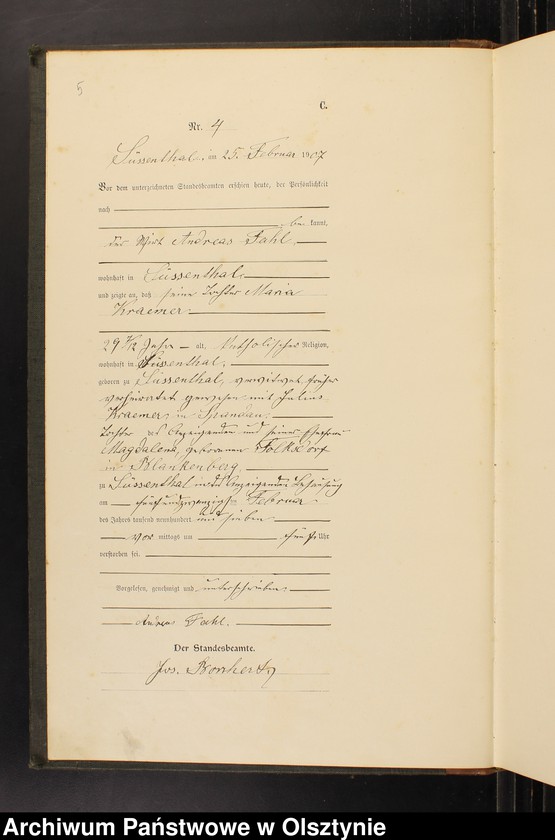 5
C.
Nr. 4
Süssenthal, am 25. Februar 1907
Vor dem unterzeichneten Standesbeamten erschien heute, der Persönlichkeit
nach
be kannt,
der Wirt Andreas Fahl
wohnhaft in Süssenthal
und zeigte an, daß seine Tochter Maria
Kraemer
29 Jahr alt, katholischer Religion,
wohnhaft in Süssenthal,
geboren zu Süssenthal, verwitwet früher
verheiratet gewesen mit Julius
Kraemer in Spandau,
Tochter des Anzeigenden und seiner Ehefrau
Magdalena, geborenen Folksdorf
in Blankenberg,
zu Süssenthal in des Anzeigenden Behausung
am fünfundzwanzigst Februar
des Jahres tausend neunhundert und sieben
vor mittags um fünf Uhr
verstorben sei.
Vorgelesen, genehmigt und unterschrieben.
Andreas Fahl.
Der Standesbeamte.
Jos.
Archiwum Państwowe w Olsztynie